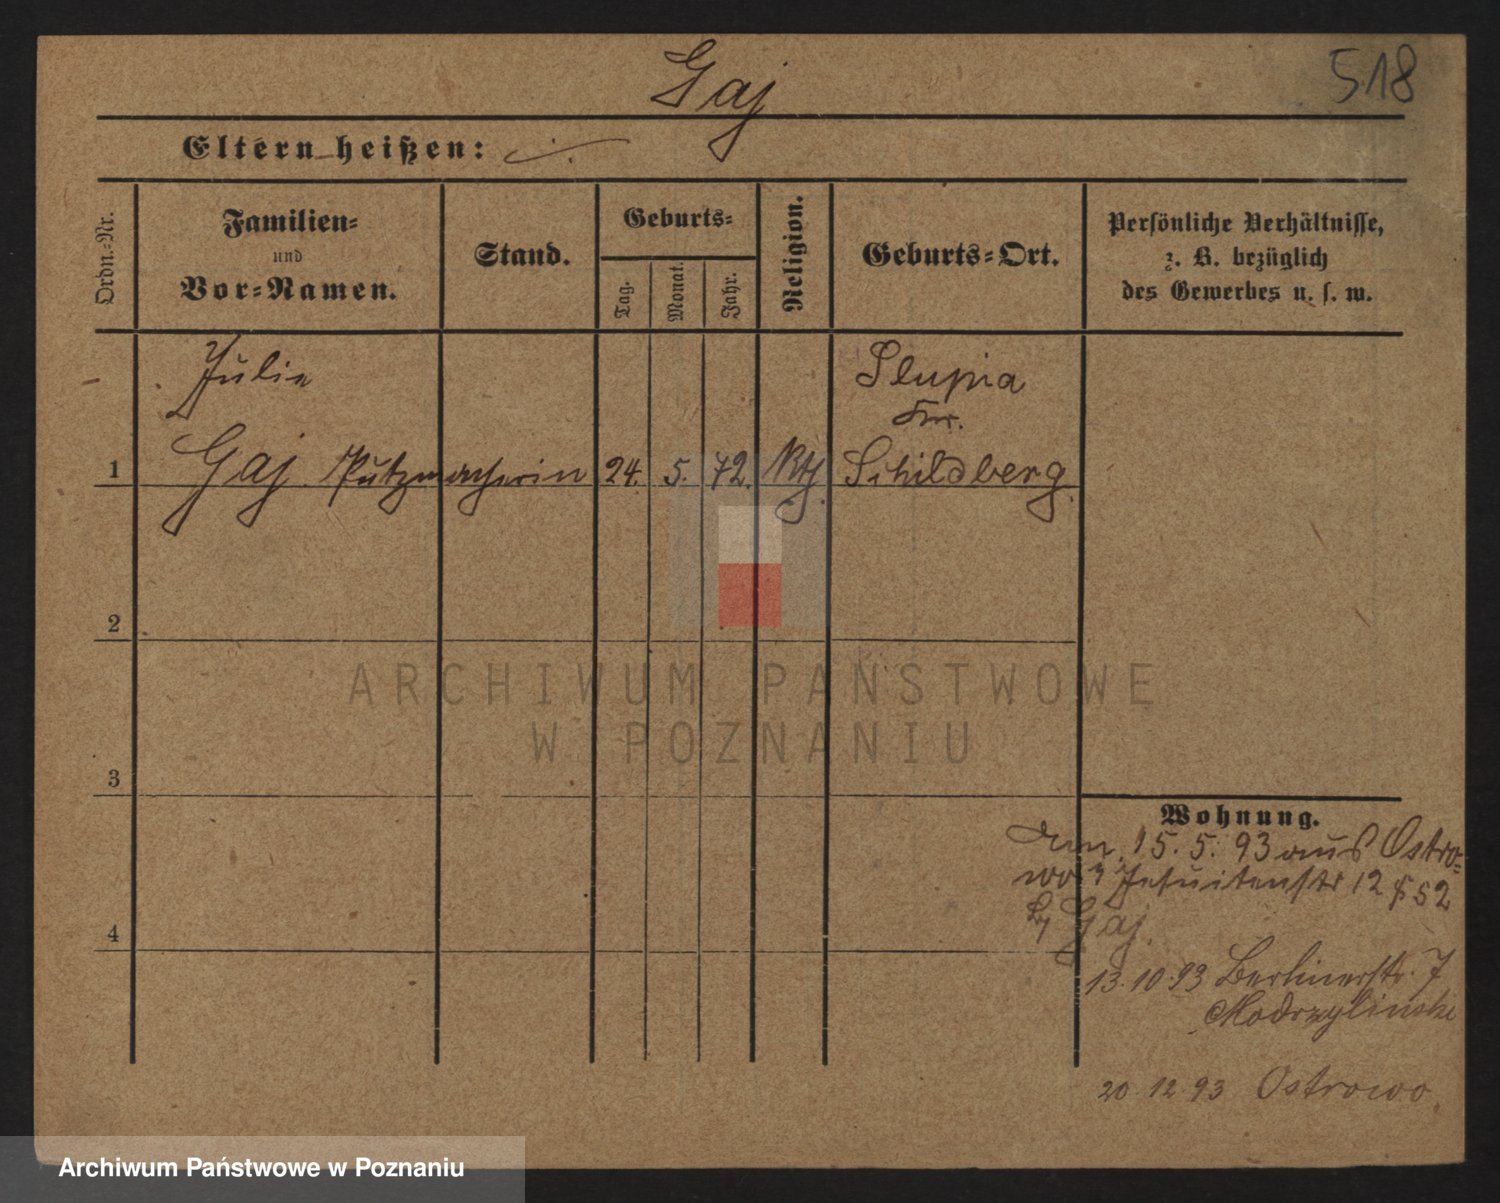 Gaj
518
Eltern heißen: ./.
Ordn.-Nr.
Familien-
und
Vor-Namen.
Stand.
Geburts-
Tag.
Monat.
Jahr.
Religion.
Geburts-Ort.
Persönliche Verhältnisse,
z. B. bezüglich
des Gewerbes u. s. w.
Julie
Slupia
Kr.
1 Gaj Putzmacherin 24. 5. 72. Kth. Schildberg.
2
3
4
Wohnung.
15. 5. 93 aus Ostro-
wo Jesuitenstr 12
Gaj.
13.10.93 Berlinerstr. 7
Modrzylinski
20 12 93 Ostrowo.
ARCHIWUM PAŃSTWOWE
W POZNANIU
Archiwum Państwowe w Poznaniu